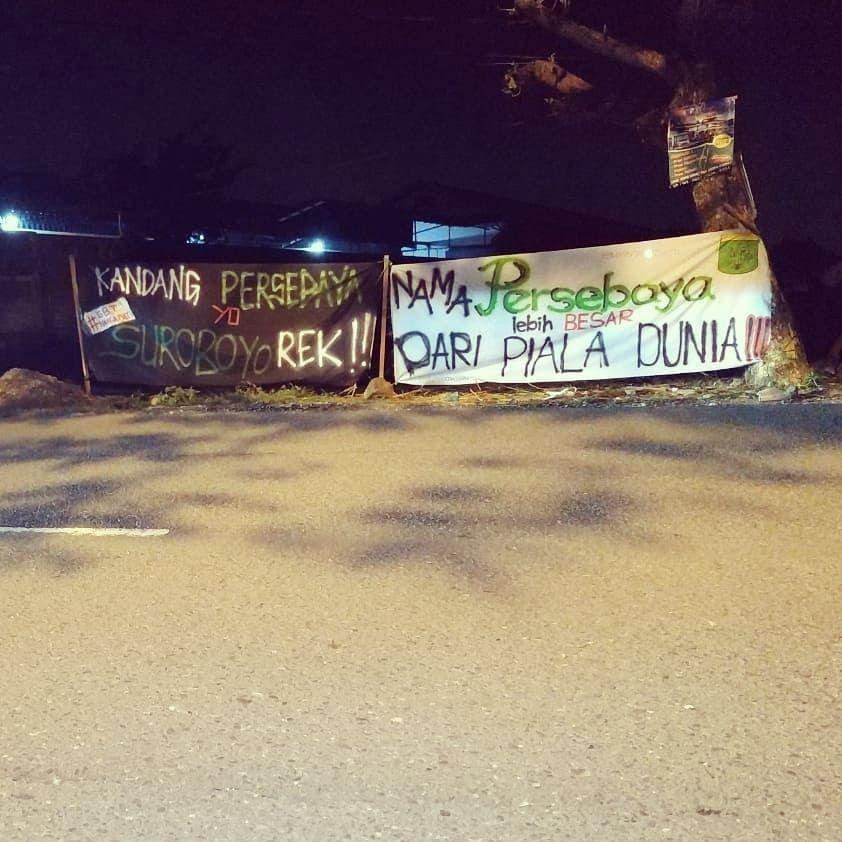 KANDANG PERSEBAYA
YO
SUROBOYO REK!!!
NAMA Persebaya
lebih BESAR
DARI PIALA DUNIA!!!